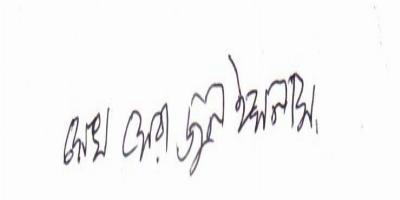 সেখ সেরাজুল ইসলাম